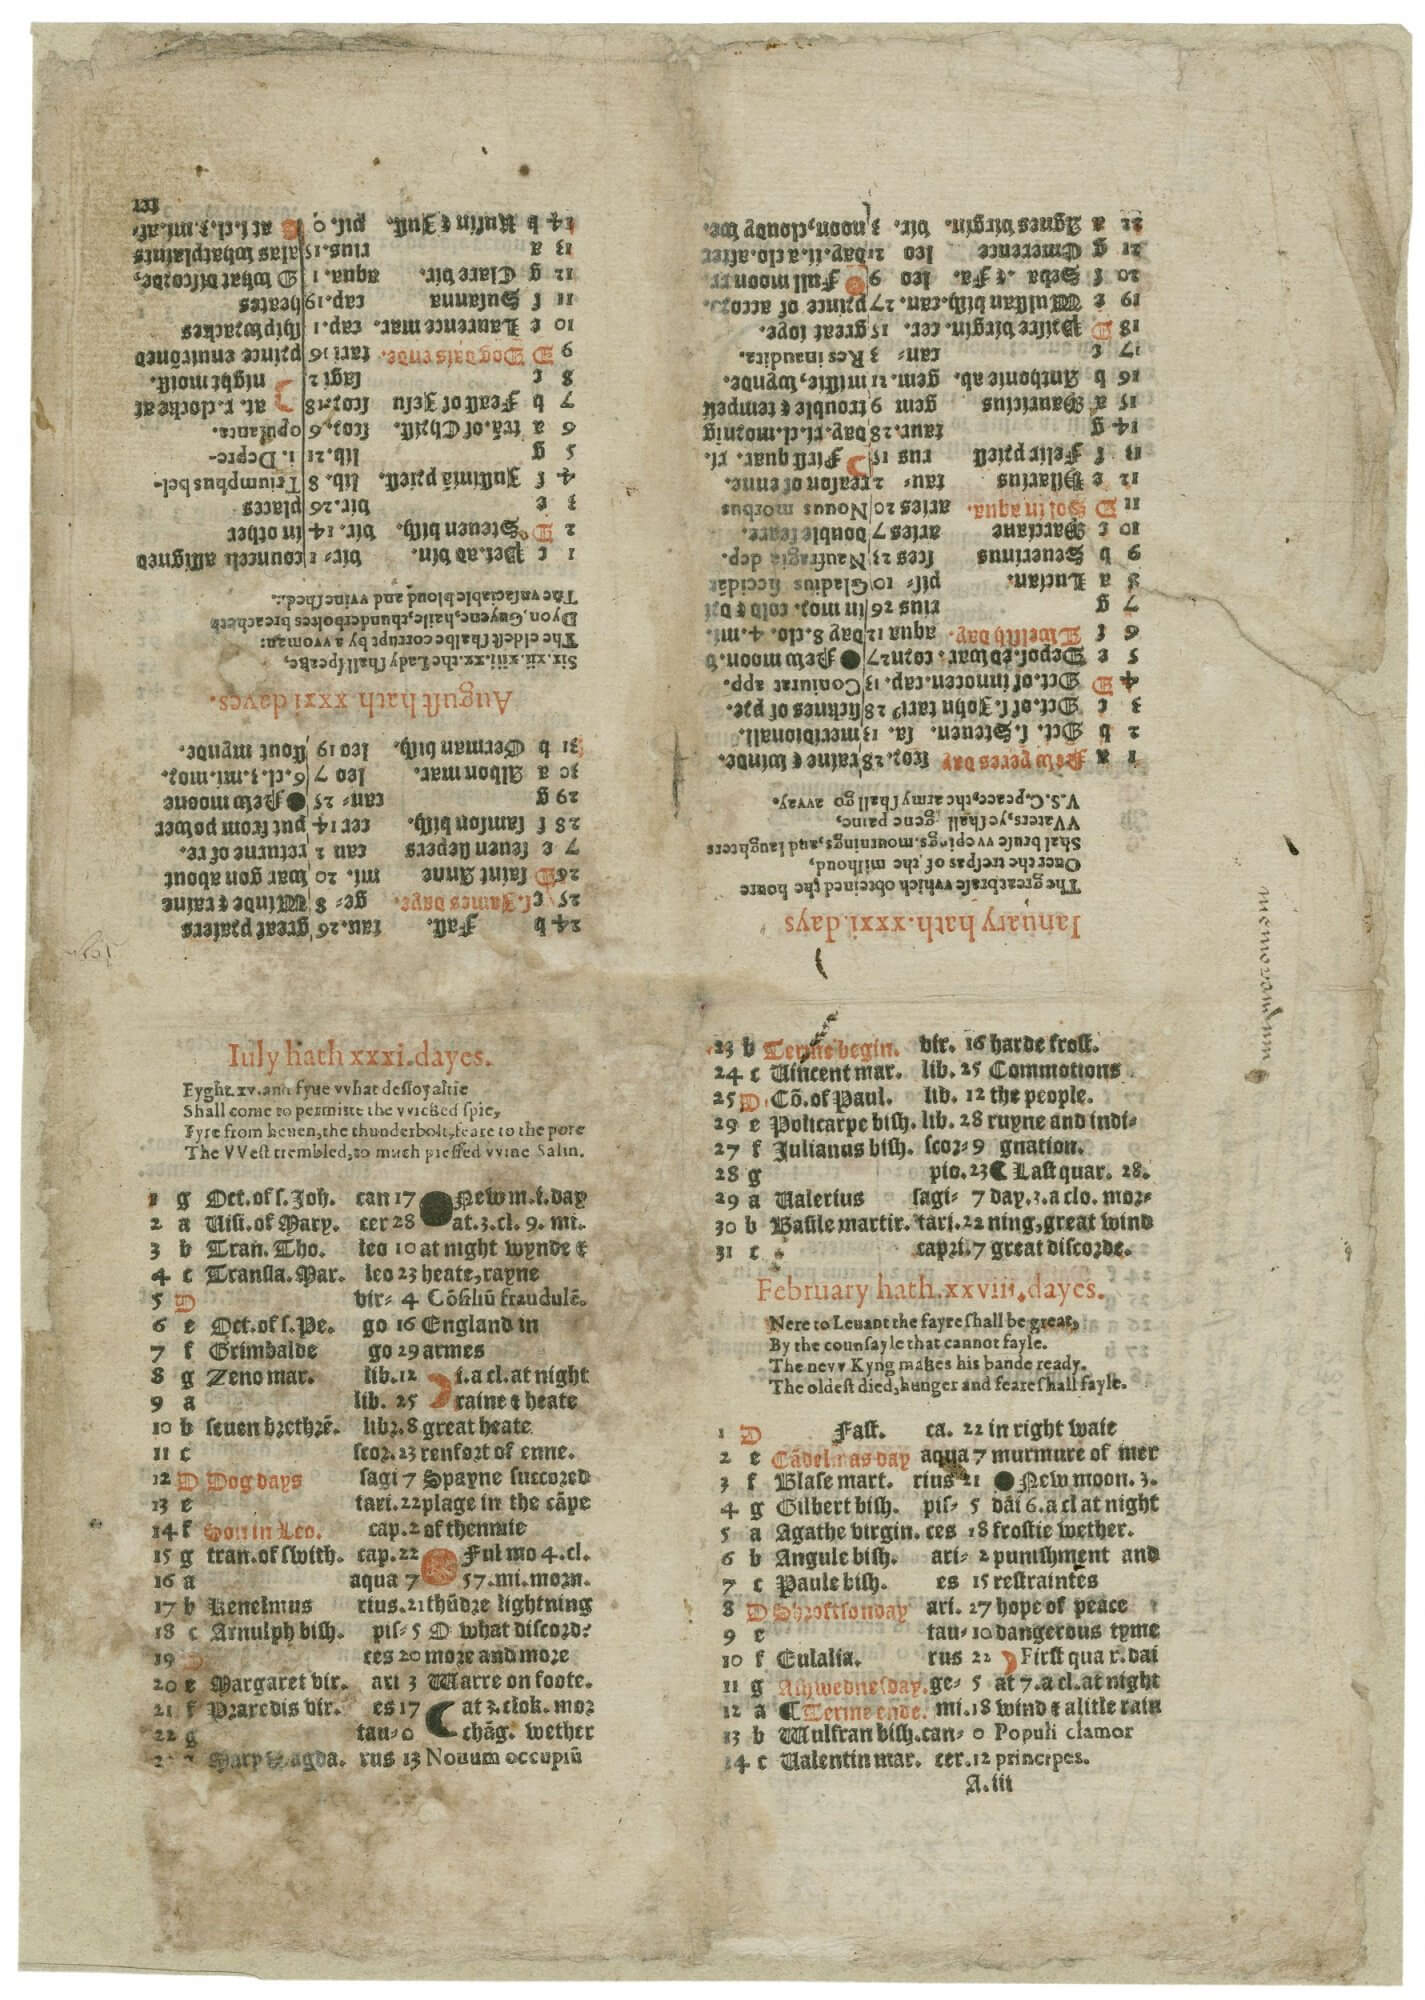 Iuly hath xxxi.dayes.
Fyght.xv.and fyue vvhat dessoyaltie
Shall come to permitte the vvicked spie,
Fyre from heuen,the thunderbolt,feare to the pore
The VVest trembled,to much pressed vvine Salin.
1 g Oct.of s.Joh. can 17 New m.i.day
2 a Uisi.of Mary. cer 28 at.3.cl.9.mi.
3 b Tran.Tho. leo 10 at night wynde &
4 c Transla.Mar. leo 23 heate,rayne
5 D vir= 4 Cōsiliū fraudulē.
6 e Oct.of s.Pe. go 16 England in
7 f Grimbalde go 29 armes
8 g Zeno mar. lib.12 i.a cl.at night
9 a lib. 25 raine & heate
10 b seuen brethrē. libr.8 great heate
11 c scor.23 renfort of enne.
12 D Dog days sagi 7 Spayne succored
13 e tari.22 plage in the cāpe
14 f Son in Leo. cap.2 of thennmie
15 g tran.of swith. cap.22 Ful mo 4.cl.
16 a aqua 7 57.mi.morn.
17 b Kenelmus rius.21 thūdre lightning
18 c Arnulph bish. pis= 5 O what discord:
19 D ces 20 more and more
20 e Margaret vir. ari 3 Warre on foote.
21 f Praredis vir. es 17 at 2.clok.mor
22 g tau= 0 chāg. wether
Mary Magda. rus 13 Nouum occupiū
24 b Fast. tau.26 great praiers
25 c s.James daye. ge= 8 Winde & raine
26 D saint Anne mi. 20 war gon about
7 e seuen slepers can 2 returne of re.
28 f samson bish. cer 14 put from power
29 g can= 25 New moone
30 a Albon mar. leo 7 6.cl.3.mi.mor.
31 b German bish. leo 19 stout wynde.
August hath xxxi dayes.
Six.xii.xiii.xx.the Lady shall speake,
The eldest shalbe corrupt by a vvoman:
Dyon,Guyene,haile,thunderboltes breacheth
The vnsaciable bloud and vvine shed.
1 c Pet.ad vin. vir= 1 councell assigned
2 D Steuen bish. vir. 14 in other
3 e vir.26 places
4 f Justiniā priest. lib. 8 Triumphus bel-
5 g lib.21 i. Depre-
6 a trā.of Christ. scor,6 opulants.
7 b Feast of Jesu scor.18 at.1.clocke at
8 c sagi 2 night moist.
9 D Dog dais ende. tari 16 prince enuirōned
10 e Laurence mar. cap.1 ship wrackes
11 f Susanna cap.19 heates
12 g Clare vir. aqua.1 O what discorde,
13 a rius.15 alas what plaints
14 b Rufin & Just. pis.0 at 1.cl.3.mi.af.
ter
Ianuary hath.xxxi.days
The great brase vvhich obteined the houre
Ouer the trespas of the milhoud,
Shal bruse vvepings.mournings,and laughters
VVaters,ye shall gene paine,
V.S.C.peace,the army shall go avvay.
1 a New yeres day scor.28 raine & winde.
2 b Oct. s.Steuen. sa. 13 meridionall.
3 c Oct.of s.John tari 28 sicknes of pre.
4 D Oct.of innocen.cap.13 Coniurat app.
5 e Depos.ed war. corn 27 New moon.5
6 f Twelfth day. aqua 12 day 8.clo.4.mi.
7 g rius 26 in mor. cold & dri
8 a Lucian. pis= 10 Gladius siccidar
9 b Seuerinus sces 23 Naufragia dep.
10 c Marciane aries 7 double feare.
11 D Sol in aqua. aries 20 Nouus morbus
12 e Hilarius tau= 2 treason of enne.
13 f Felix priest rus 15 First quar. ri.
14 g taur.28 day.ri.cl.mornig
15 a Mauricius gem 9 trouble & tempest
16 b Anthonie ab. gem.21 mistie,wynde.
17 c can= 3 Res inaudita.
18 D Prisce virgin.cer. 15 great ioye.
19 e Wulstan bish.can.27 prince of accord.
20 f Seba & Fa. leo 9 Full moon
21 g Emerence leo 21 day.ii.a clo.after
22 a Agnes virgin. vir. 3 noon,cloudy we.
23 b Terme begin. vir. 16 harde frost.
24 c Uincent mar. lib. 25 Commotions
25 D Cō.of Paul. lib. 12 the people.
29 e Policarpe bish. lib. 28 ruyne and indi=
27 f Julianus bish. scor= 9 gnation.
28 g pio.23 Last quar. 28.
29 a Ualerius sagi= 7 day.3.a clo. mor=
30 b Basile martir. tari.22 ning,great wind
31 c capri.7 great discorde.
February hath.xxviii.dayes.
Nere to Leuant the fayre shall be great,
By the counsayle that cannot fayle.
The nevv Kyng makes his bande ready.
The oldest died,hunger and feare shall fayle.
1 D Fast. ca. 22 in right waie
2 e Cādelmas day aqua 7 murmure of mer
3 f Blase mart. rius 21 New moon.3.
4 g Gilbert bish. pis= 5 dai 6.a cl at night
5 a Agathe virgin. ces 18 frostie wether.
6 b Angule bish. ari= 2 punishment and
7 c Paule bish. es 15 restraintes
8 D Shroftsonday ari. 27 hope of peace
9 e tau= 10 dangerous tyme
10 f Eulalia. rus 22 First quar.dai
11 g Ashwednesday.ge= 5 at 7.a cl.at night
12 a Terme ende. mi.18 wind & a litle rain
13 b Wulfran bish.can= 0 Populi clamor
14 c Ualentin mar. cer.12 principes.
A.iii
memorandum